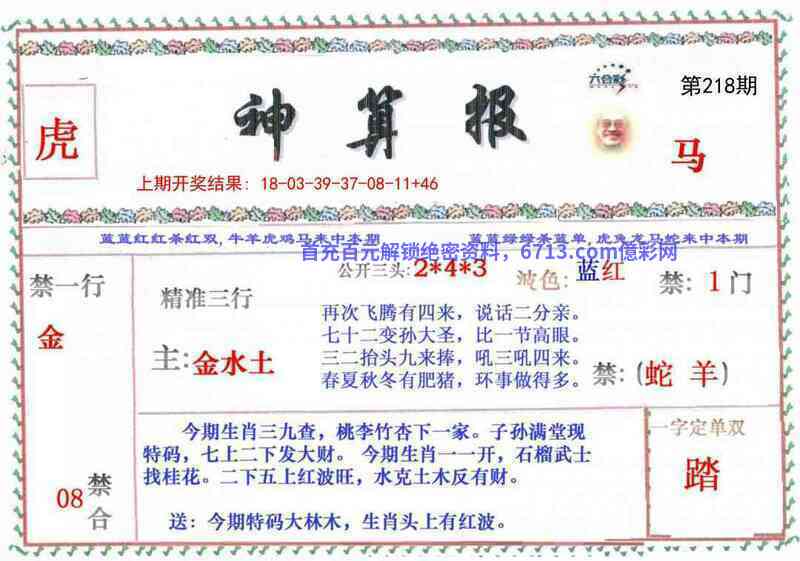 六合彩
第218期
虎
神算报
马
上期开奖结果：18-03-39-37-08-11+46
蓝蓝红红条红双,牛羊虎鸡马来中本期
蓝蓝绿绿条蓝单,虎兔龙马蛇来中本期
首充百元解锁绝密资料，6713.com億彩网
禁一行
金
08
禁合
精准三行
主:金水土
公开三头:2*4*3
波色:蓝红
禁:1门
再次飞腾有四来，说话二分亲。
七十二变孙大圣，比一节高眼。
三二抬头九来捧，吼三吼四来。
春夏秋冬有肥猪，环事做得多。
禁:(蛇 羊)
今期生肖三九查，桃李竹杏下一家。子孙满堂现
特码，七上二下发大财。 今期生肖一一开，石榴武士
找桂花。二下五上红波旺，水克土木反有财。
送：今期特码大林木，生肖头上有红波。
一字定单双
踏